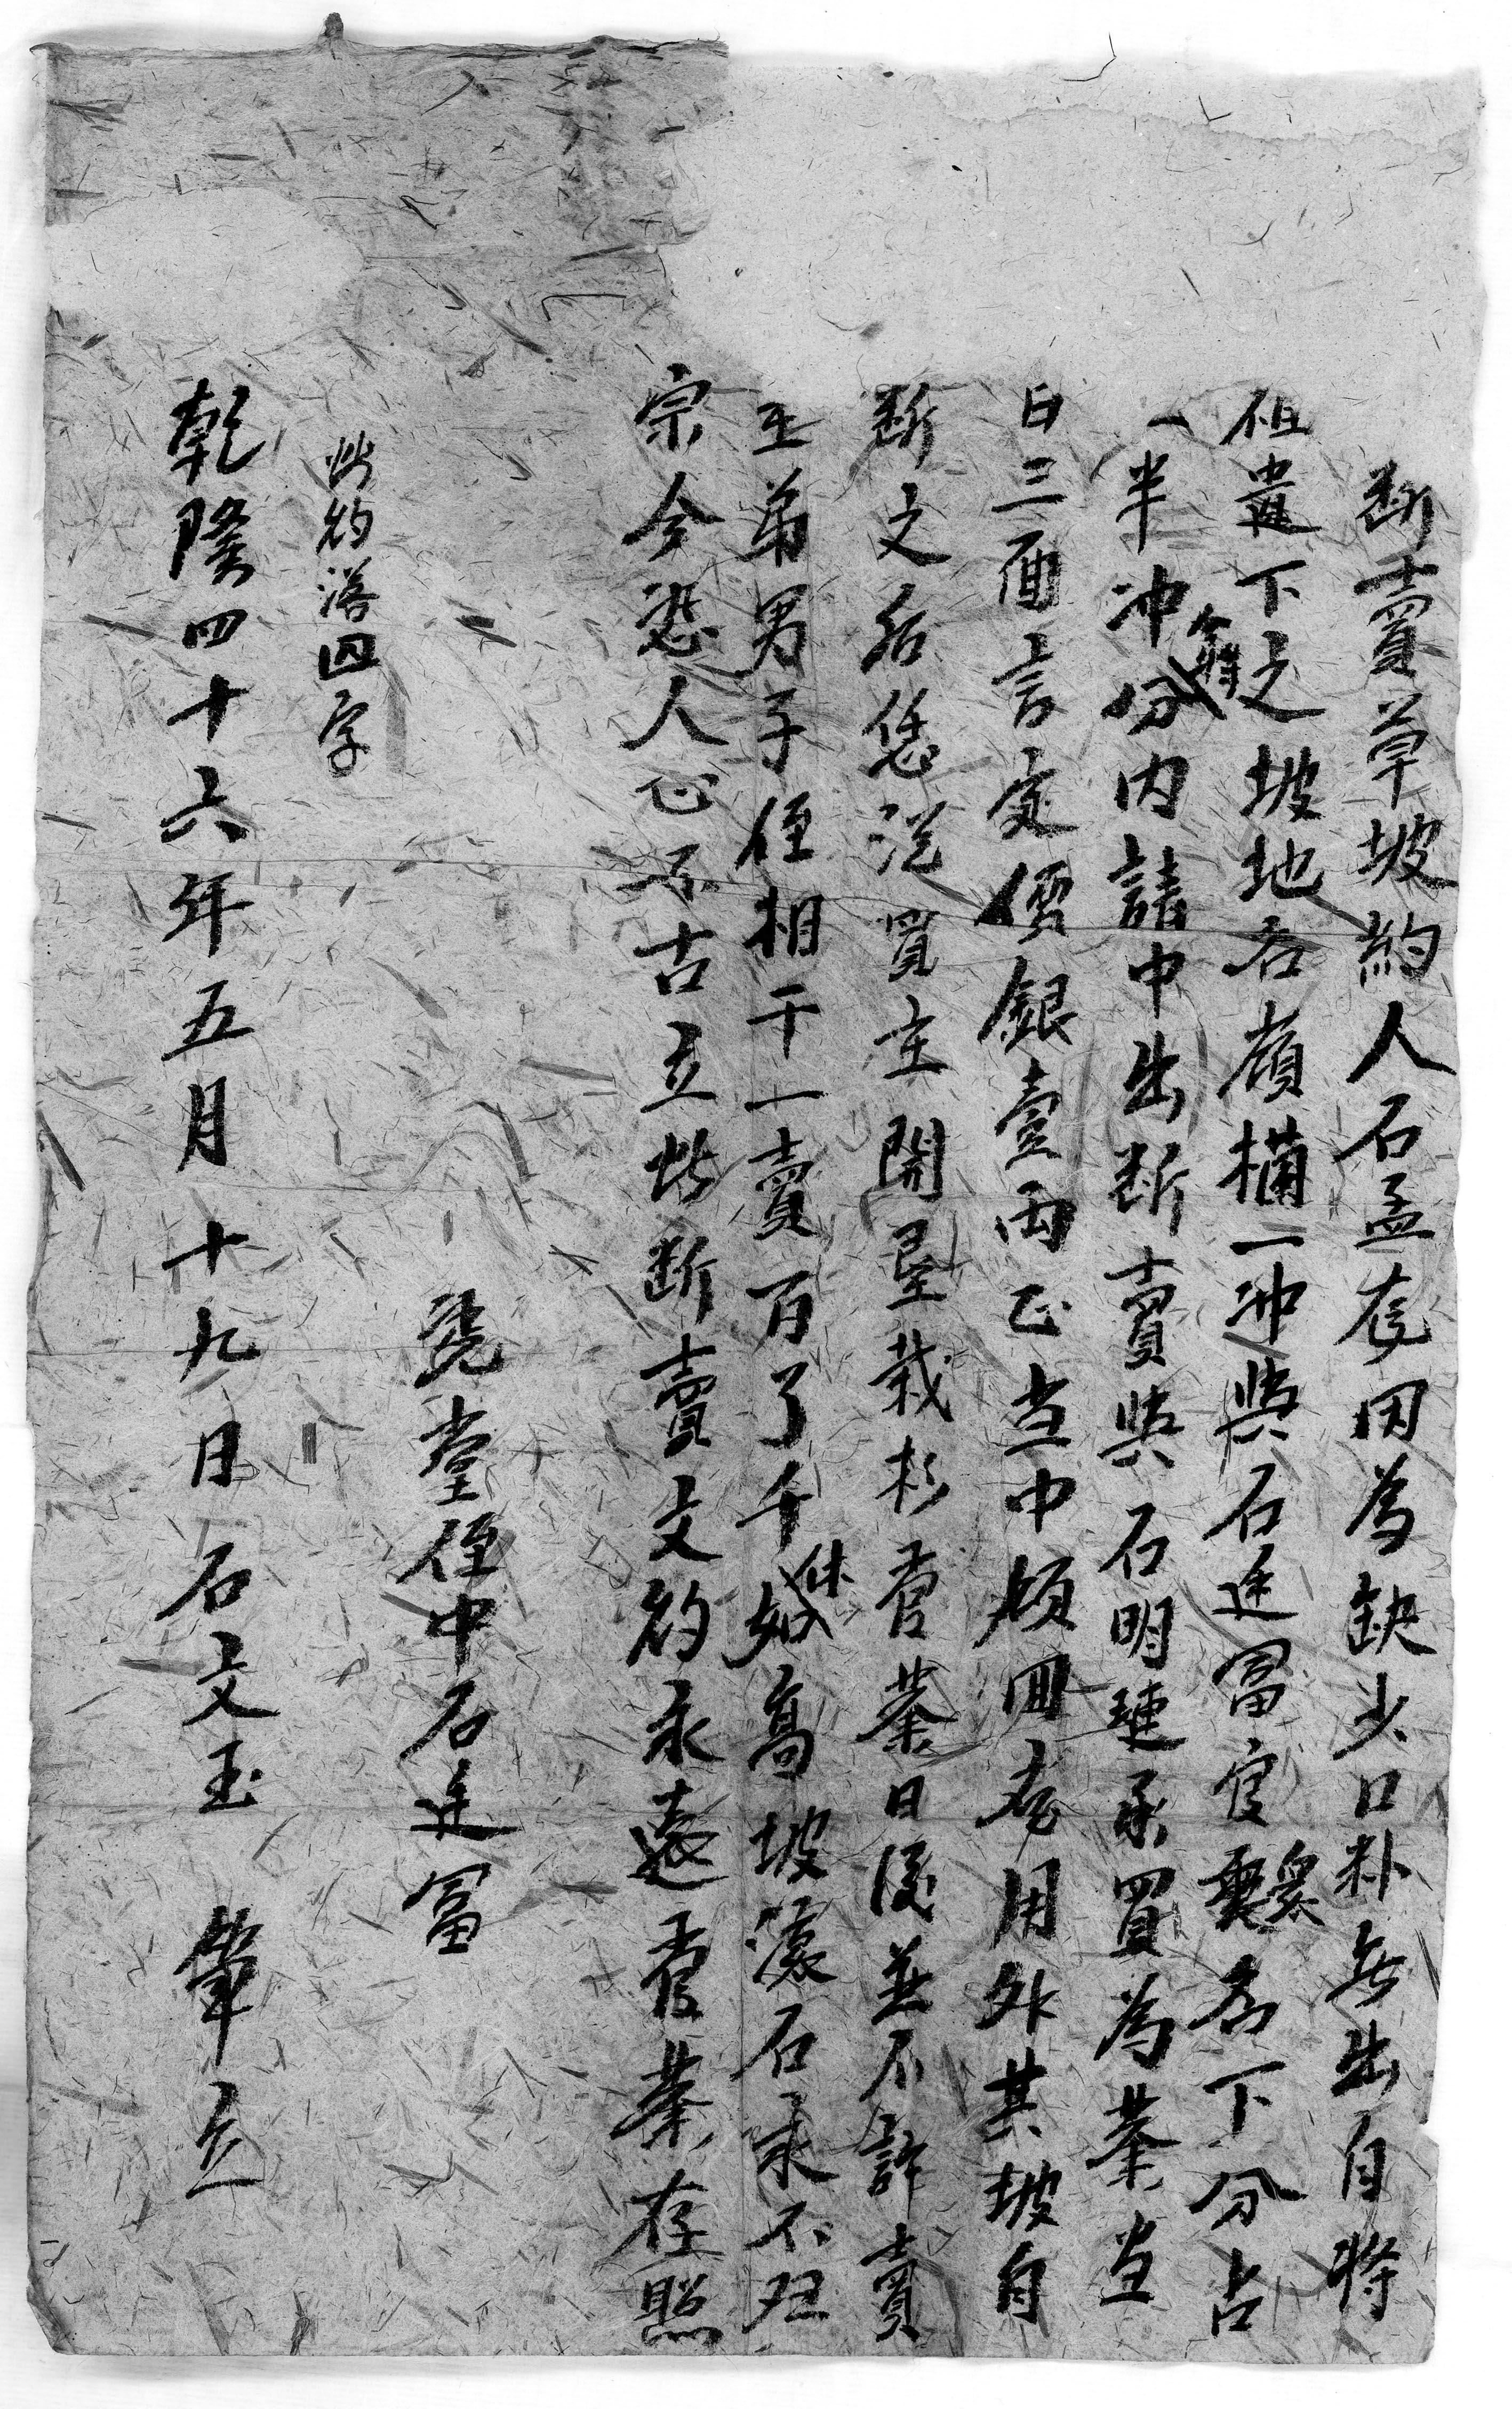 断賣草坡約人石孟存因為缺少口粆無出自将
祖遺下之坡地名嶺樠一冲與石廷冨官衆名下分占
一半冲今将分内請中出断賣與石明璉承買為業当
日三面言定價銀壹両正当中領囬存用外其坡自
断之后恁從買主開墾栽杉管業日後並不許賣
主弟男子侄相干一賣百了千休如高坡滾石永不归
宗今恐人心不古立此断賣文約永遠管業存照
凴堂侄中石廷冨
此約落四字
乾隆四十六年五月十九日石文玉 筆立